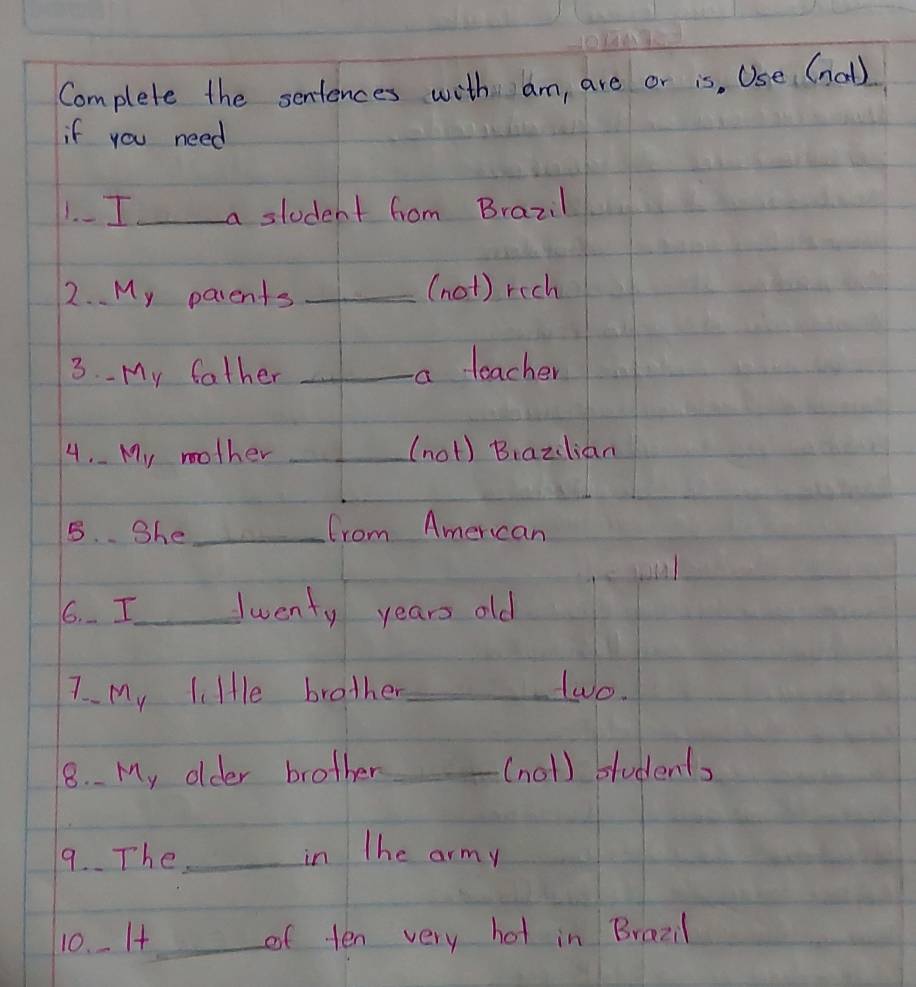 Complete the sentences with am, are or is. Use (not)
if you need
1.- I _____ a student from Brazil
2.- My parents _____ (not) rich
3.- My father _____ a teacher
4.- My mother _____ (not) Brazilian
5.- She _____ from American
6.- I _____ twenty years old
7.- My little brother _____ two.
8.- My older brother _____ (not) students
9.- The _____ in the army
10.- It _____ of ten very hot in Brazil